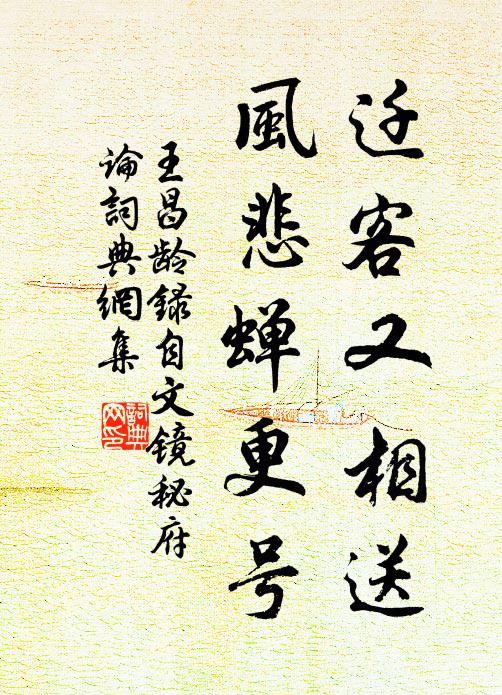 迁客又相送
風悲蝉更号
王昌龄録自文镜秘府
论詞典網集
詞典
网印